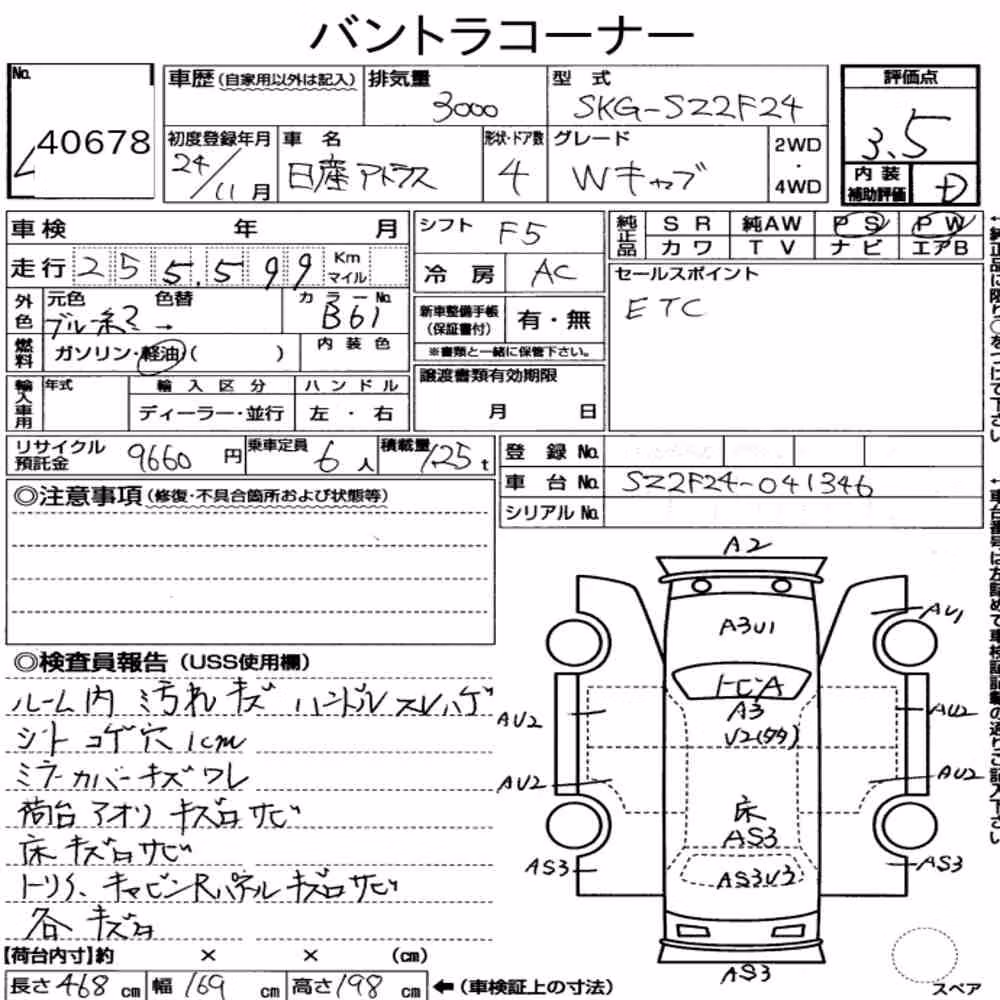 バントラコーナー
No. 40678
車歴 (自家用以外は記入) 排気量 3000 型式 SKG-SZ2F24 評価点 3.5
初度登録年月 24/11月 車名 日産アトラス 形状・ドア数 4 グレード Wキャブ 2WD・4WD 内装補助評価 D
車検 年 月 シフト F5 純正品 SR 純AW PS PW
カワ TV ナビ エアB
走行 255,599 Km マイル 冷房 AC セールスポイント
ETC
外色 元色 色替 カラーNo. B61 新車整備手帳(保証書付) 有・無
燃料 ガソリン・軽油・( ) 内装色 ※書類と一緒に保管下さい。
輸入車用 年式 輸入区分 ハンドル 譲渡書類有効期限
ディーラー・並行 左・右 月 日
リサイクル預託金 9660円 乗車定員 6人 積載量 1.25t 登録No.
車台No. SZ2F24-041346
シリアルNo.
◎注意事項(修復・不具合箇所および状態等)
◎検査員報告(USS使用欄)
ルーム内 汚れ キズ ハンドルスレハゲ
シート コゲ穴 1cm
ミラーカバーキズワレ
荷台 アオリ キズロサビ
床 キズロサビ
キャビンRパネル キズロサビ
各 キズロ
【荷台内寸】約 × × (cm)
長さ468cm 幅169cm 高さ198cm ←(車検証上の寸法)
A2
A3U1
AU1
トビA
A3
AU2
AU2
AU2
AU2
床
AS3
AS3
AS3
AS3
スペア
↑純正品に限り○をつけて下さい